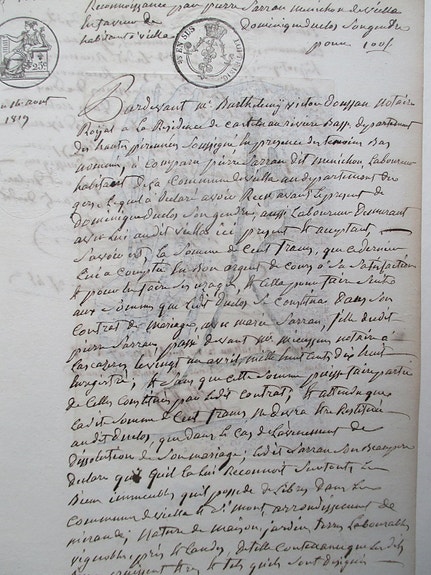 Reconnoissance par pierre Sarran menichon de viella
en faveur de Dominique duclos Son gendre
habitant à viella pour 100f
EN SUS
du 16 aout
1819
Pardevant me Barthelemy victor Doussau Notaire
Royal à la Residence de castelnau riviere Basse departement
des hautes pirennées Soussigné En presence des temoins Bas
només, à comparu pierre Sarran dit menichon Laboureur
habitant de la Commune de viella au departement du
gers Lequel a declaré avoir Reçu avant le present de
dominique duclos Son gendre, aussi Laboureur Demeurant
avec lui audit viella ici present & acceptant,
Savoir est, la Somme de Cent francs, que ce dernier
lui a compté En Son argent de cours à Sa Satisfaction
& pour En faire Ses usages, & cella pour faire Suite
aux Sommes que Led. duclos Se Constitua dans Son
Contrat de mariage, avec marie Sarran, fille dudit
pierre Sarran, passé devant me notaire à
Lascazeres, Le vingt un avril mille huit cents dix huit
Enregistré; & Sans que cette Somme puisse faire partie
de Celles Constituées par Ledit contrat; & attendu que
Ladite Somme de Cent francs Ne devra Etre Restituée
audit duclos, que dans Le cas de L'évenement de
dissolution de Son mariage; Ledit Sarran Son Beaupere
declare que qu'il la lui Reconnoit Sur touts Les
Biens immeubles qu'il possede de Libres dans La
Commune de viella & di'mont arrondissement de
mirande; Nature de maison, jardin, terres Labourables
vignobles, près & Landes, de telle Contenance que Le dit
& tels qu'ils Sont designés